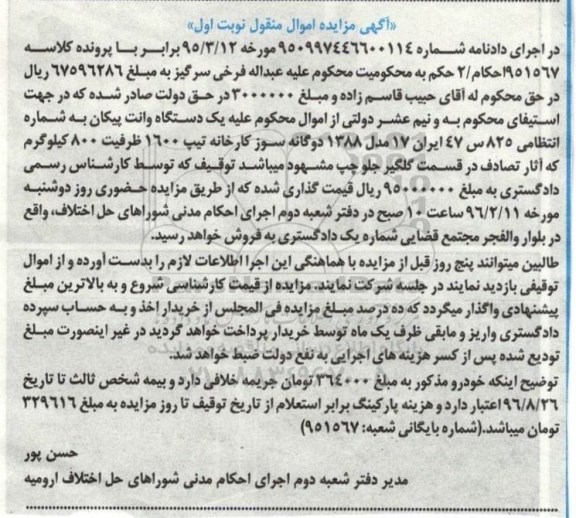 «آگهی مزایده اموال منقول نوبت اول»
در اجرای دادنامه شماره ۹۵۰۹۹۷۴۴۶۶۰۰۱۱۴ مورخه ۹۵/۳/۱۲ برابر با پرونده کلاسه
۹۵۱۵۶۷احکام/۲ حکم به محکومیت محکوم علیه عبداله فرخی سرگیز به مبلغ ۶۷۵۹۶۲۸۶ ریال
در حق محکوم له آقای حبیب قاسم زاده و مبلغ ۳۰۰۰۰۰۰ در حق دولت صادر شده که در جهت
استیفای محکوم به و نیم عشر دولتی از اموال محکوم علیه یک دستگاه وانت پیکان به شماره
انتظامی ۸۲۵ س ۴۷ ایران ۱۷ مدل ۱۳۸۸ دوگانه سوز کارخانه تیپ ۱۶۰۰ ظرفیت ۸۰۰ کیلوگرم
که آثار تصادف در قسمت گلگیر جلو چپ مشهود میباشد توقیف که توسط کارشناس رسمی
دادگستری به مبلغ ۹۵۰۰۰۰۰۰ ریال قیمت گذاری شده که از طریق مزایده حضوری روز دوشنبه
مورخه ۹۶/۲/۱۱ ساعت ۱۰ صبح در دفتر شعبه دوم اجرای احکام مدنی شوراهای حل اختلاف، واقع
در بلوار والفجر مجتمع قضایی شماره یک دادگستری به فروش خواهد رسید.
طالبین میتوانند پنج روز قبل از مزایده با هماهنگی این اجرا اطلاعات لازم را بدست آورده و از اموال
توقیفی بازدید نمایند در جلسه شرکت نمایند. مزایده از قیمت کارشناسی شروع و به بالاترین مبلغ
پیشنهادی واگذار میگردد که ده درصد مبلغ مزایده فی المجلس از خریدار اخذ و به حساب سپرده
دادگستری واریز و مابقی ظرف یک ماه توسط خریدار پرداخت خواهد گردید در غیر اینصورت مبلغ
تودیع شده پس از کسر هزینه های اجرایی به نفع دولت ضبط خواهد شد.
توضیح اینکه خودرو مذکور به مبلغ ۳۶۴۰۰۰ تومان جریمه خلافی دارد و بیمه شخص ثالث تا تاریخ
۹۶/۸/۲۶ اعتبار دارد و هزینه پارکینگ برابر استعلام از تاریخ توقیف تا روز مزایده به مبلغ ۳۲۹۶۱۶
تومان میباشد.(شماره بایگانی شعبه: ۹۵۱۵۶۷)
حسن پور
مدیر دفتر شعبه دوم اجرای احکام مدنی شوراهای حل اختلاف ارومیه